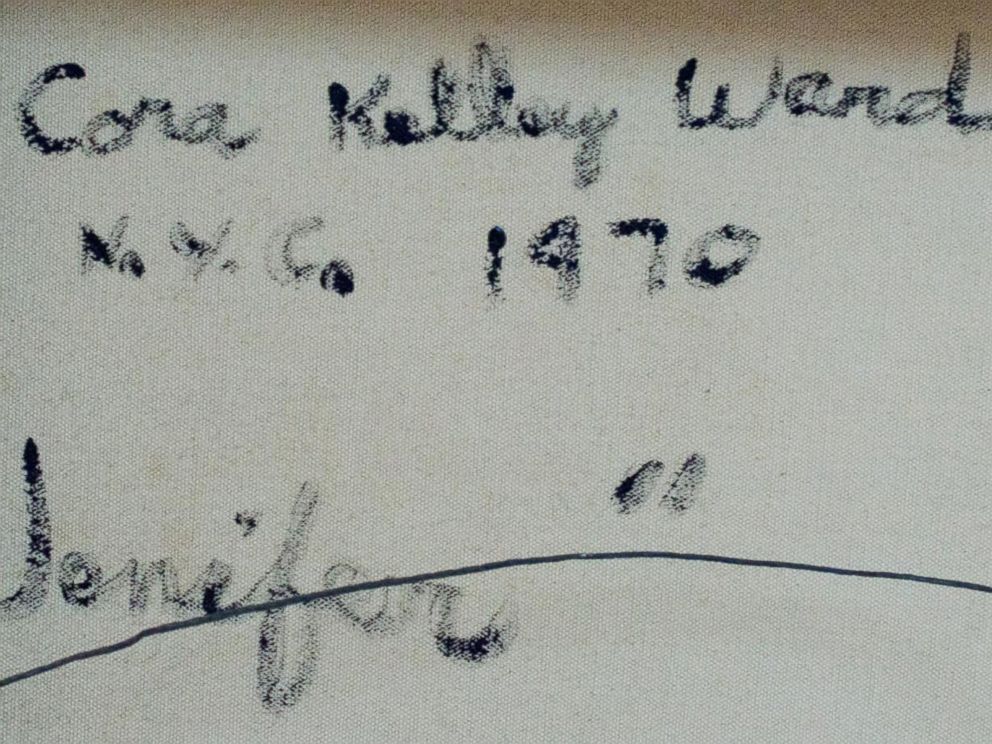 Cora Kelley Ward
N.Y.C. 1970
Jenifer "